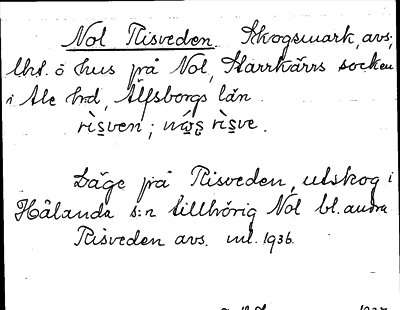 Nol Risveden. Skogsmark, avs.,
lht. o hus på Nol, Starrkärrs socken
i Ale hd, Älfsborgs län.
rìsven; rìsve.
Läge på Risveden, utskog i
Hålanda s:n tillhörig Nol bl. andra
Risveden avs. 1936.